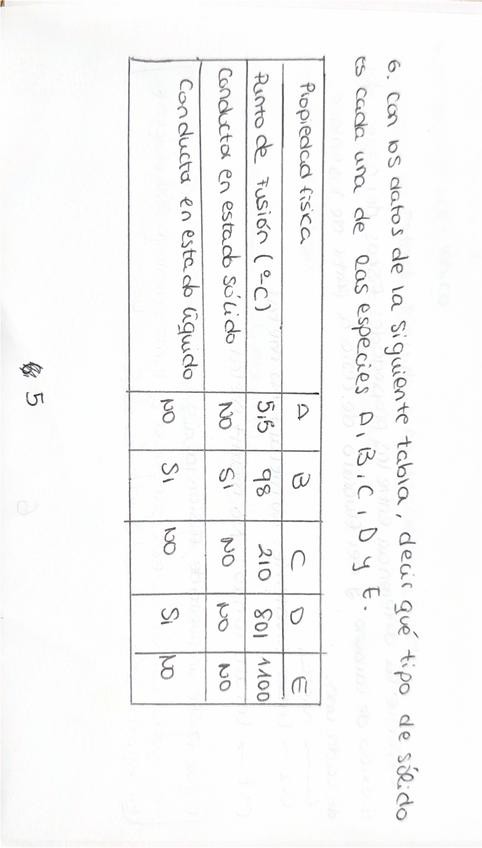 6. con los datos de la siguiente tabla, decir qué tipo de sólido
es cada una de las especies A, B, C, D y E.
Propiedad física A B C D E
Punto de Fusión (º-C) 5,5 98 210 801 1100
Conducta en estado sólido NO SI NO NO NO
Conducta en estado líquido NO SI NO SI NO
5